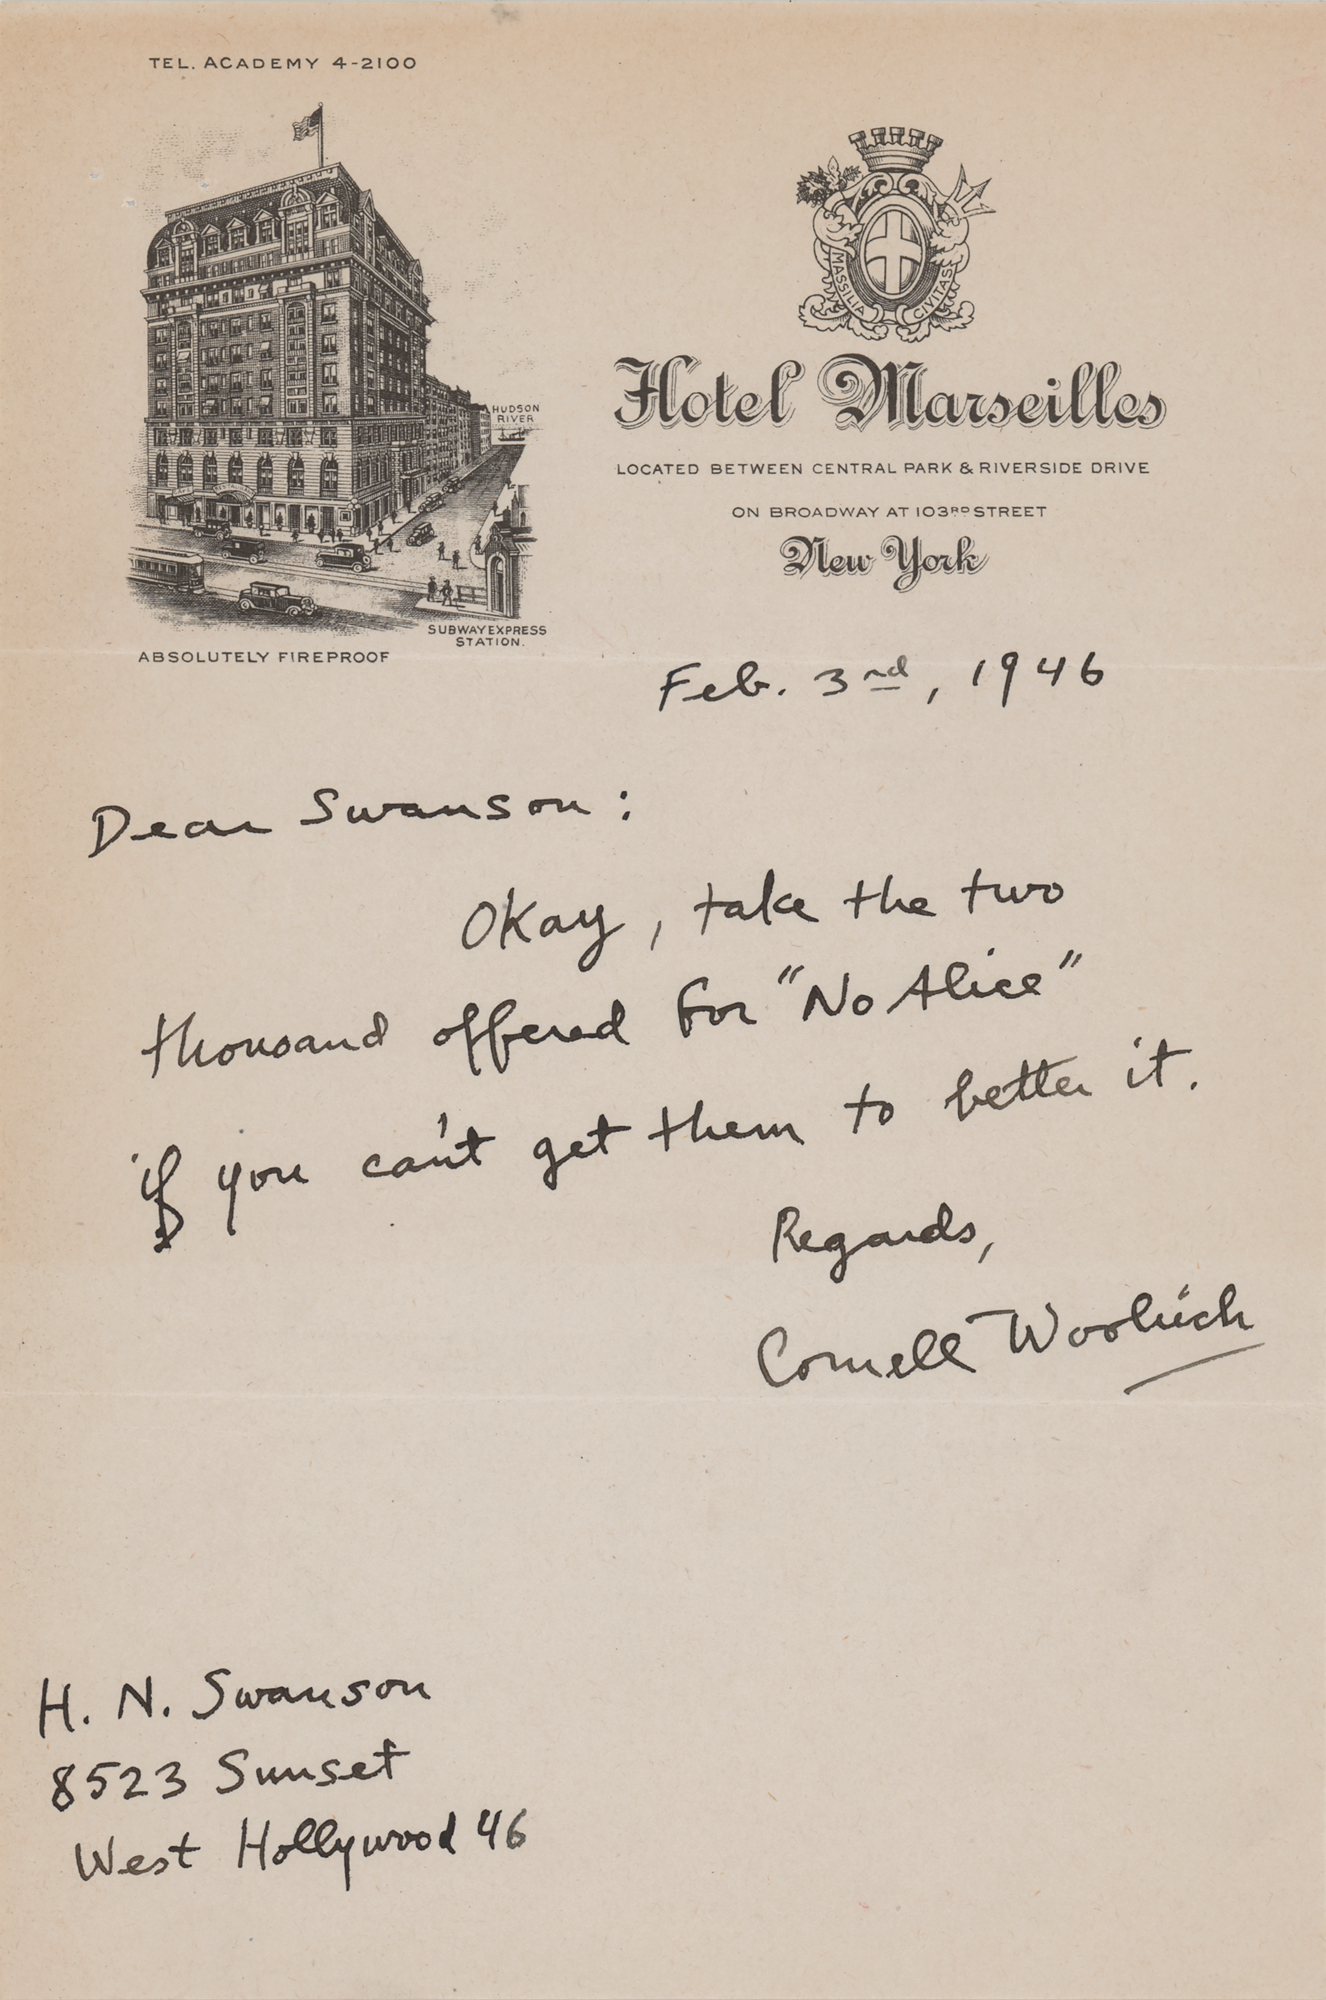 TEL. ACADEMY 4-2100
MASSILIA CIVITAS
HUDSON
RIVER
Hotel Marseilles
LOCATED BETWEEN CENTRAL PARK & RIVERSIDE DRIVE
ON BROADWAY AT 103RD STREET
New York
SUBWAY EXPRESS
STATION.
ABSOLUTELY FIREPROOF
Feb. 3rd, 1946
Dear Swanson:
Okay, take the two
thousand offered for "No Alice"
if you can't get them to better it.
Regards,
Cornell Woolrich
H. N. Swanson
8523 Sunset
West Hollywood 46